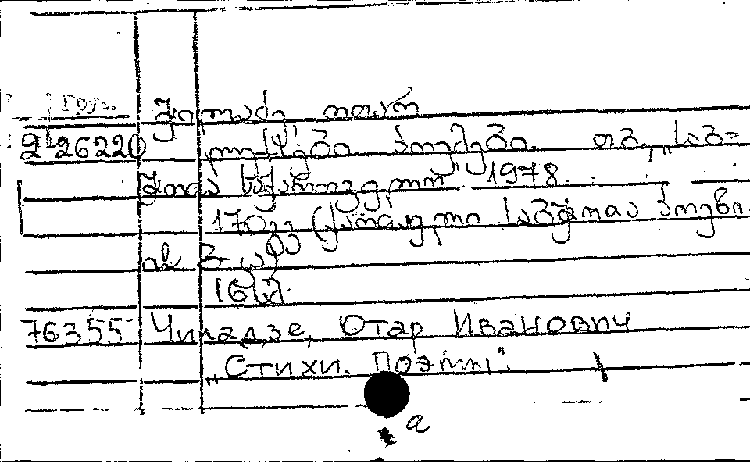 ჭილაძე ოთარ
2 26220 ლექსები პოემები. თბ., „საბ=
ჭოთა საქართველო" 1978.
170გვ (ქართული საბჭოთა პოეზი
16 კ.
76355 Чиладзе, Отар Иванович
„Стихи. Поэмы".
a